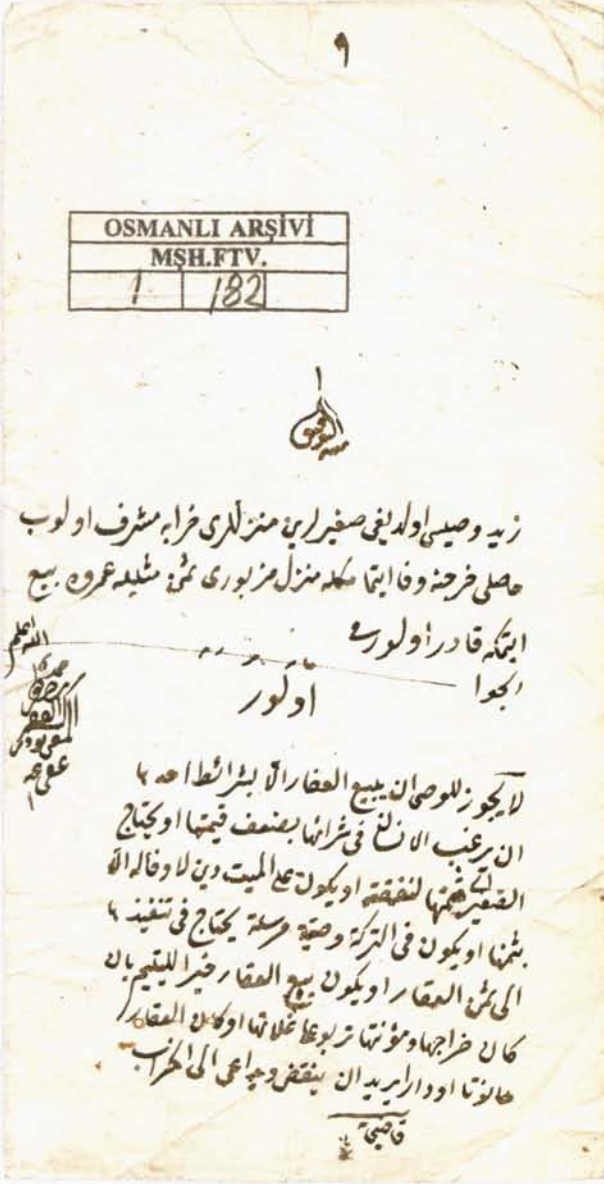 ٩
OSMANLI ARŞİVİ
MŞH.FTV.
1 182
منه التوفيق
زيد وصيسى اولديغى صغيرلرين منزللرى خرابه مشرف اولوب
حاصلى خرجنه وفا ايتمامكله منزل مزبورى ثمن مثليله عمروه بيع
ايتمكه قادر اولورمى
الجواب
الله اعلم
اولور
عفى عنه
لا يجوز للوصى ان يبيع العقار الا بشرائط احدها
ان يرغب الانسان فى شرائها بضعف قيمتها او يحتاج
الصغير الى ثمنها لنفقته او يكون على الميت دين لا وفا له الا
بثمنها او يكون فى التركة وصية مرسلة يحتاج فى تنفيذها
الى ثمن العقار او يكون بيع العقار خيرا لليتيم بان
كان خراجها ومؤنتها تربو على غلاتها او كان العقار
حانوتا او دارا يريد ان ينقض وتداعى الى الخراب
قاضيخان